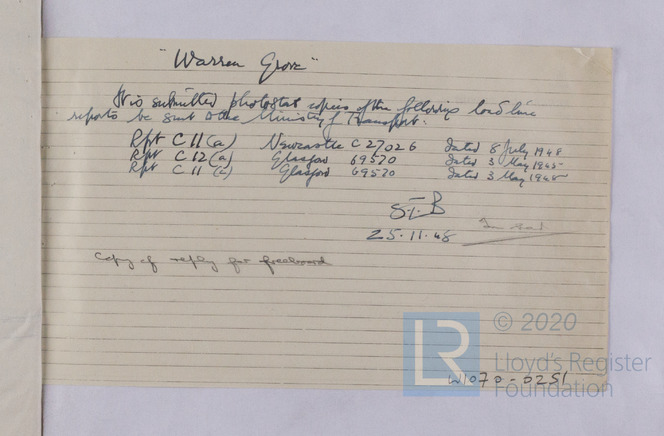 "Warren Grove"
It is submitted photostat copies of the following load line
reports be sent to the Ministry of Transport.
Rpt C 11 (a) Newcastle C 27026 dated 8 July 1948
Rpt C 12 (a) Glasgow 69570 dated 3 May 1945
Rpt C 11 (c) Glasgow 69570 dated 3 May 1945
25.11.48
Copy of reply for freeboard
© 2020
LR
Lloyd's Register
Foundation
W1070-0251